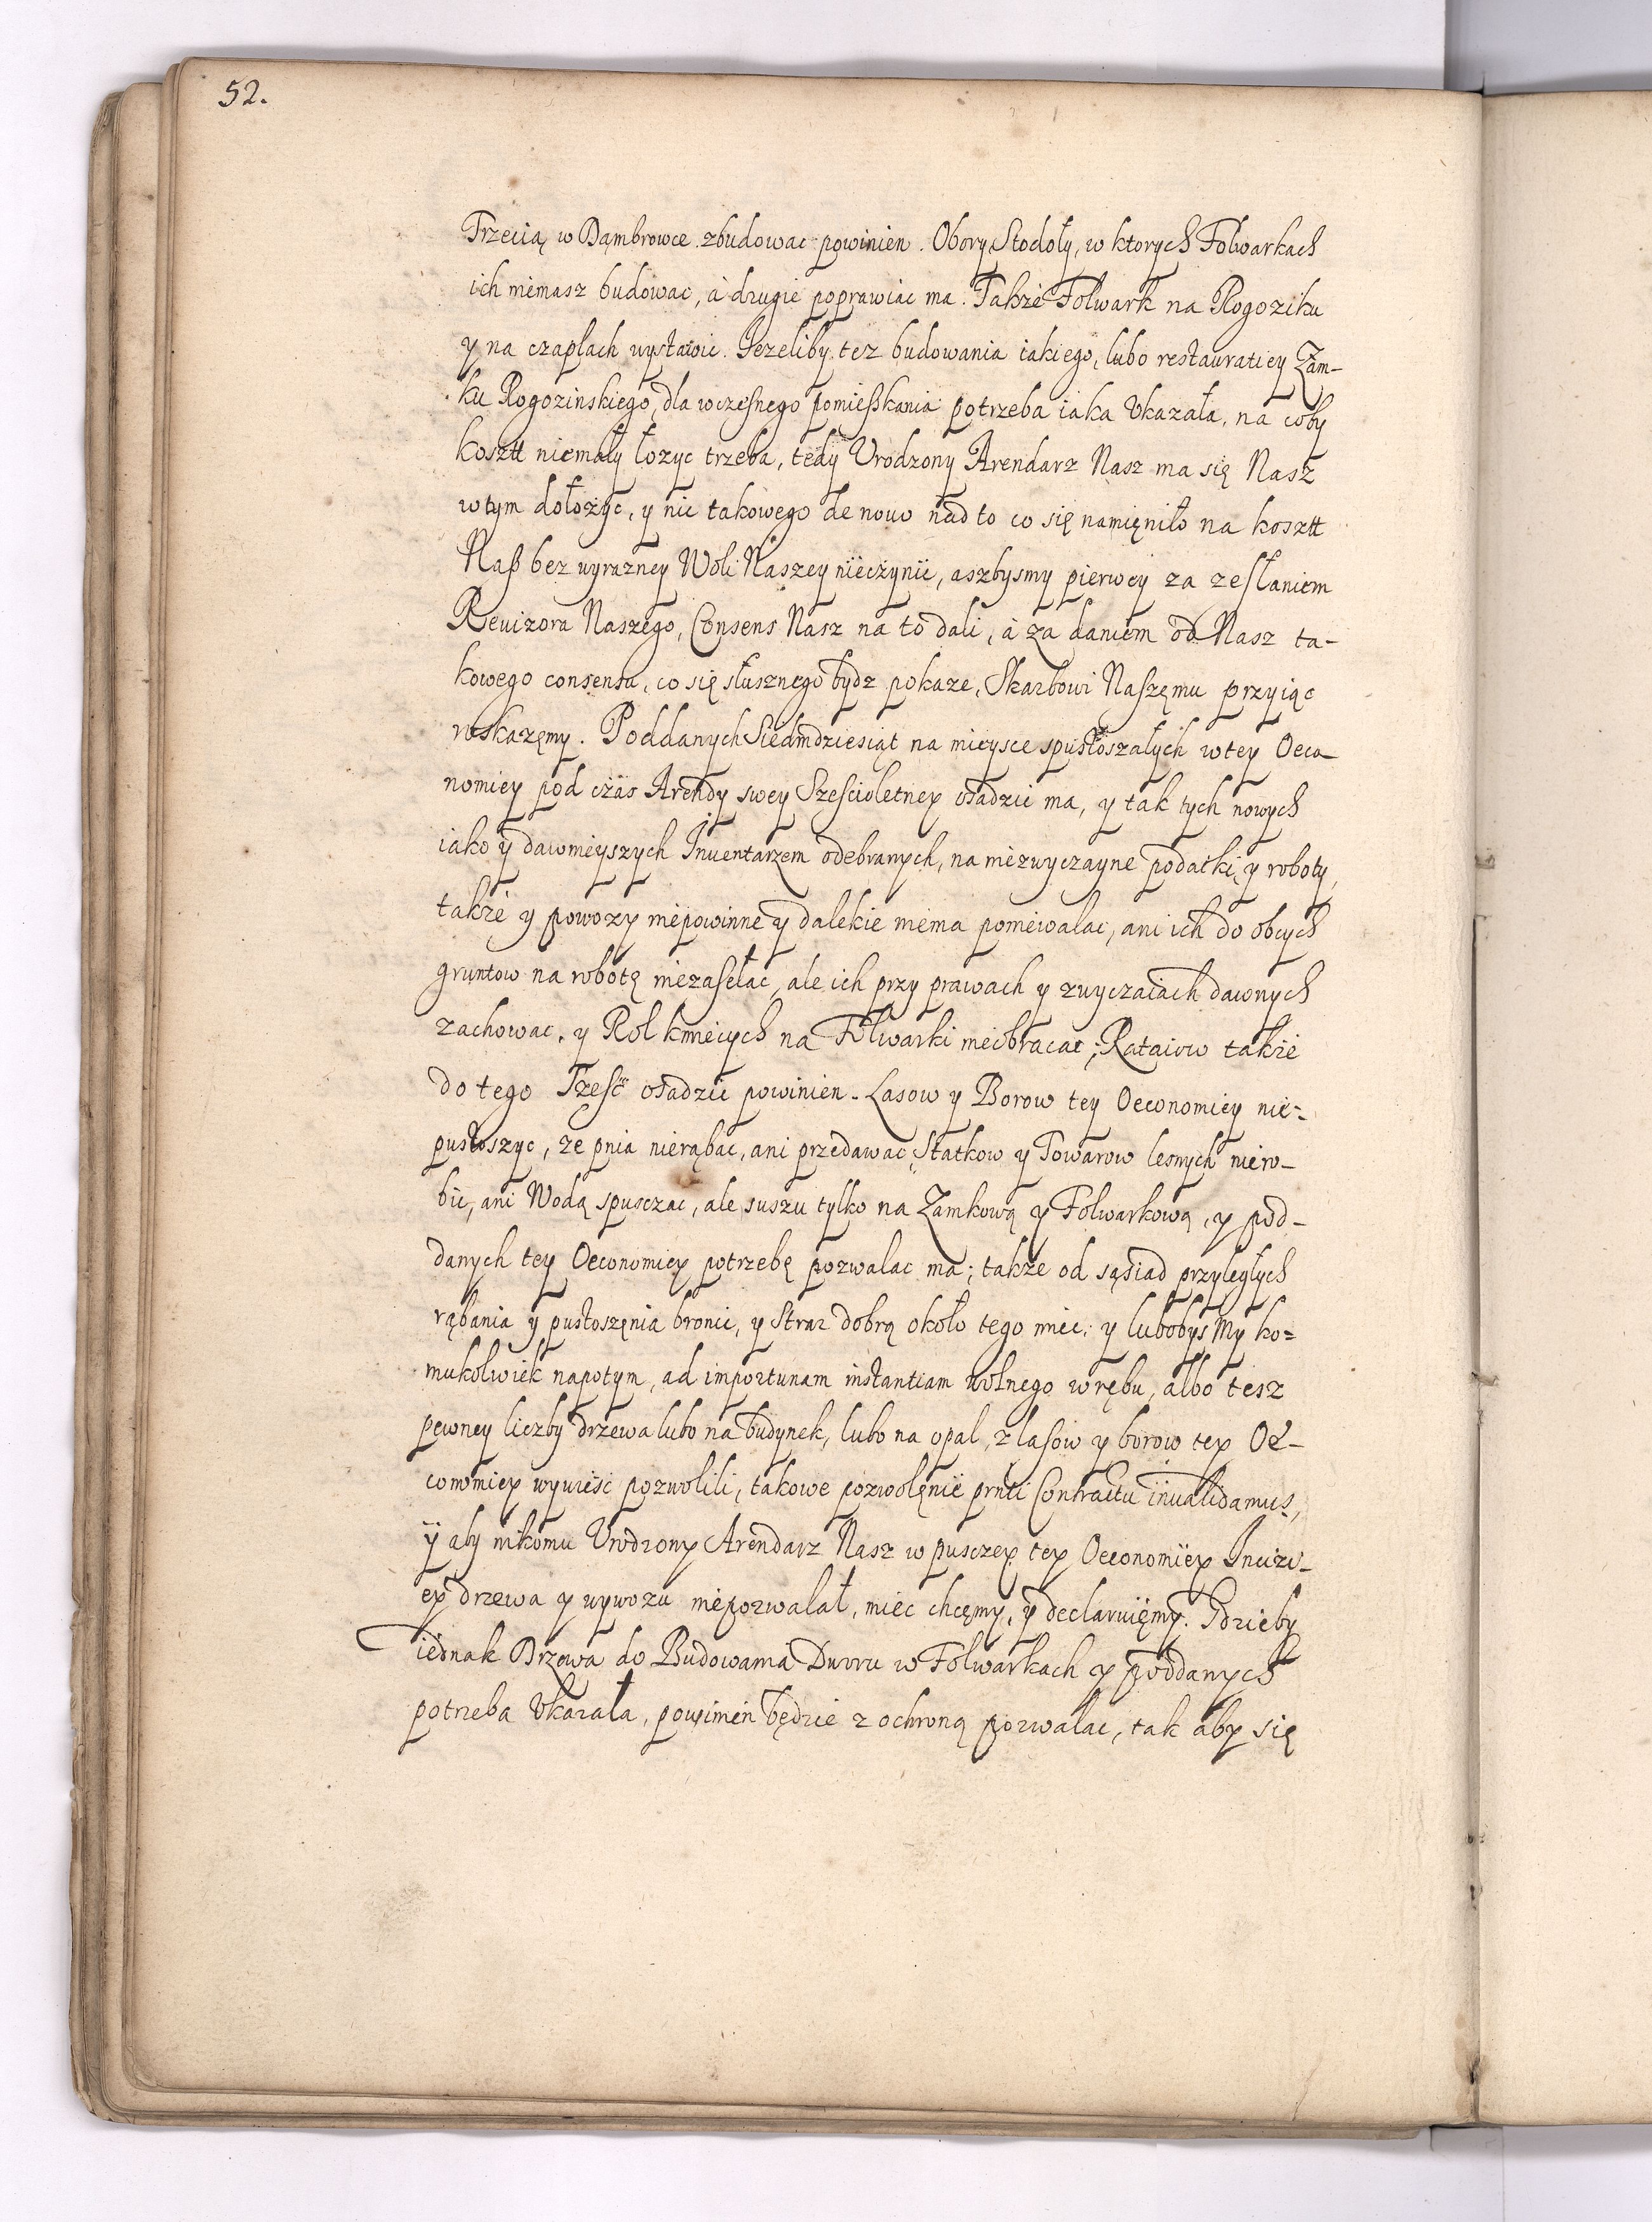 52.
Trzecią w Dąmbrowce zbudowac powinien. Obory, Stodoły, w ktorych Folwarkach
ich niemasz budowac, à drugie poprawiac ma. Także Folwark na Rogoziku
y na czaplach wystawic. Jezeliby tez budowania iakiego, lubo restauratiey Zam-
ku Rogozinskiego, dla wczesnego pomießkania potrzeba iaka Vkazała, na coby
kosztt niemały łozyc trzeba, tedy Vrodzony Arendarz Nasz ma się Nasz
w tym dołożyc, y nic takowego de nouo nad to co się namięniło na kosztt
Naß bez wyrazney Woli Naszey nieczynic, aszbysmy pierwey za zesłaniem
Reuizora Naszego, Consens Nasz na to dali, à za daniem od Nasz ta-
kowego consensu, co się słusznego bydz pokaze, Skarbowi Naszęmu przyiąc
wskazęmy. Poddanych Siedmdziesiąt na mieysce spustoszałych w tey Oeco-
nomiey pod czas Arendy swey Szescioletney osadzic ma, y tak tych nowych
iako y dawnieyszych Inuentarzem odebranych, na niezwyczayne podatki y roboty,
także y powozy niepowinne y dalekie niema poniewalac, ani ich do obcych
gruntow na robotę niezasełac, ale ich przy prawach y zwyczaiach dawnych
zachowac, y Rol kmiecych na Folwarki nieobracac; Rataiow także
do tego Szesc osadzic powinien. Lasow y Borow tey Oeconomiey nie-
pustoszyc, ze pnia nierąbac, ani przedawac, Statkow y Towarow lesnych niero-
bic, ani Wodą spusczac, ale suszu tylko na Zamkową y Folwarkową, y pod-
danych tey Oeconomiey potrzebę pozwalac ma; także od sąsiad przyległych
rąbania y pustoszęnia bronic, y Straz dobrą około tego miec; y lubobysmy ko-
mukolwiek napotym, ad importunam instantiam wolnego wrębu, albo tesz
pewney liczby drzewa lubo na budynek, lubo na opal, z lasow y borow tey Oe-
conomiey wywiesc pozwolili, takowe pozwolęnie prnti Contractu inualidamus,
y aby nikomu Vrodzony Arendarz Nasz w pusczey tey Oeconomiey Incizi-
ey drzewa y wywozu niepozwalał, miec chcęmy, y declaruięmy. Gdzieby
iednak Drzewa do Budowania Dworu w Folwarkach y poddanych
potrzeba Vkazała, powinien będzie z ochroną pozwalac, tak aby się